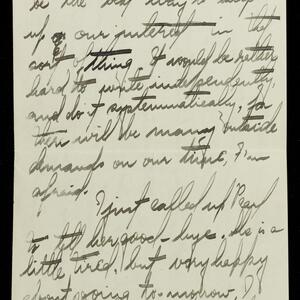 be the best way to keep
up our interest in the
sort of thing. It would be rather
hard to write independently,
and do it systematically, for
there will be many outside
demands on our time, I'm
afraid.
I just called up Pearl
to tell her good-bye. She is a
little tired, but very happy
about going to-morrow.